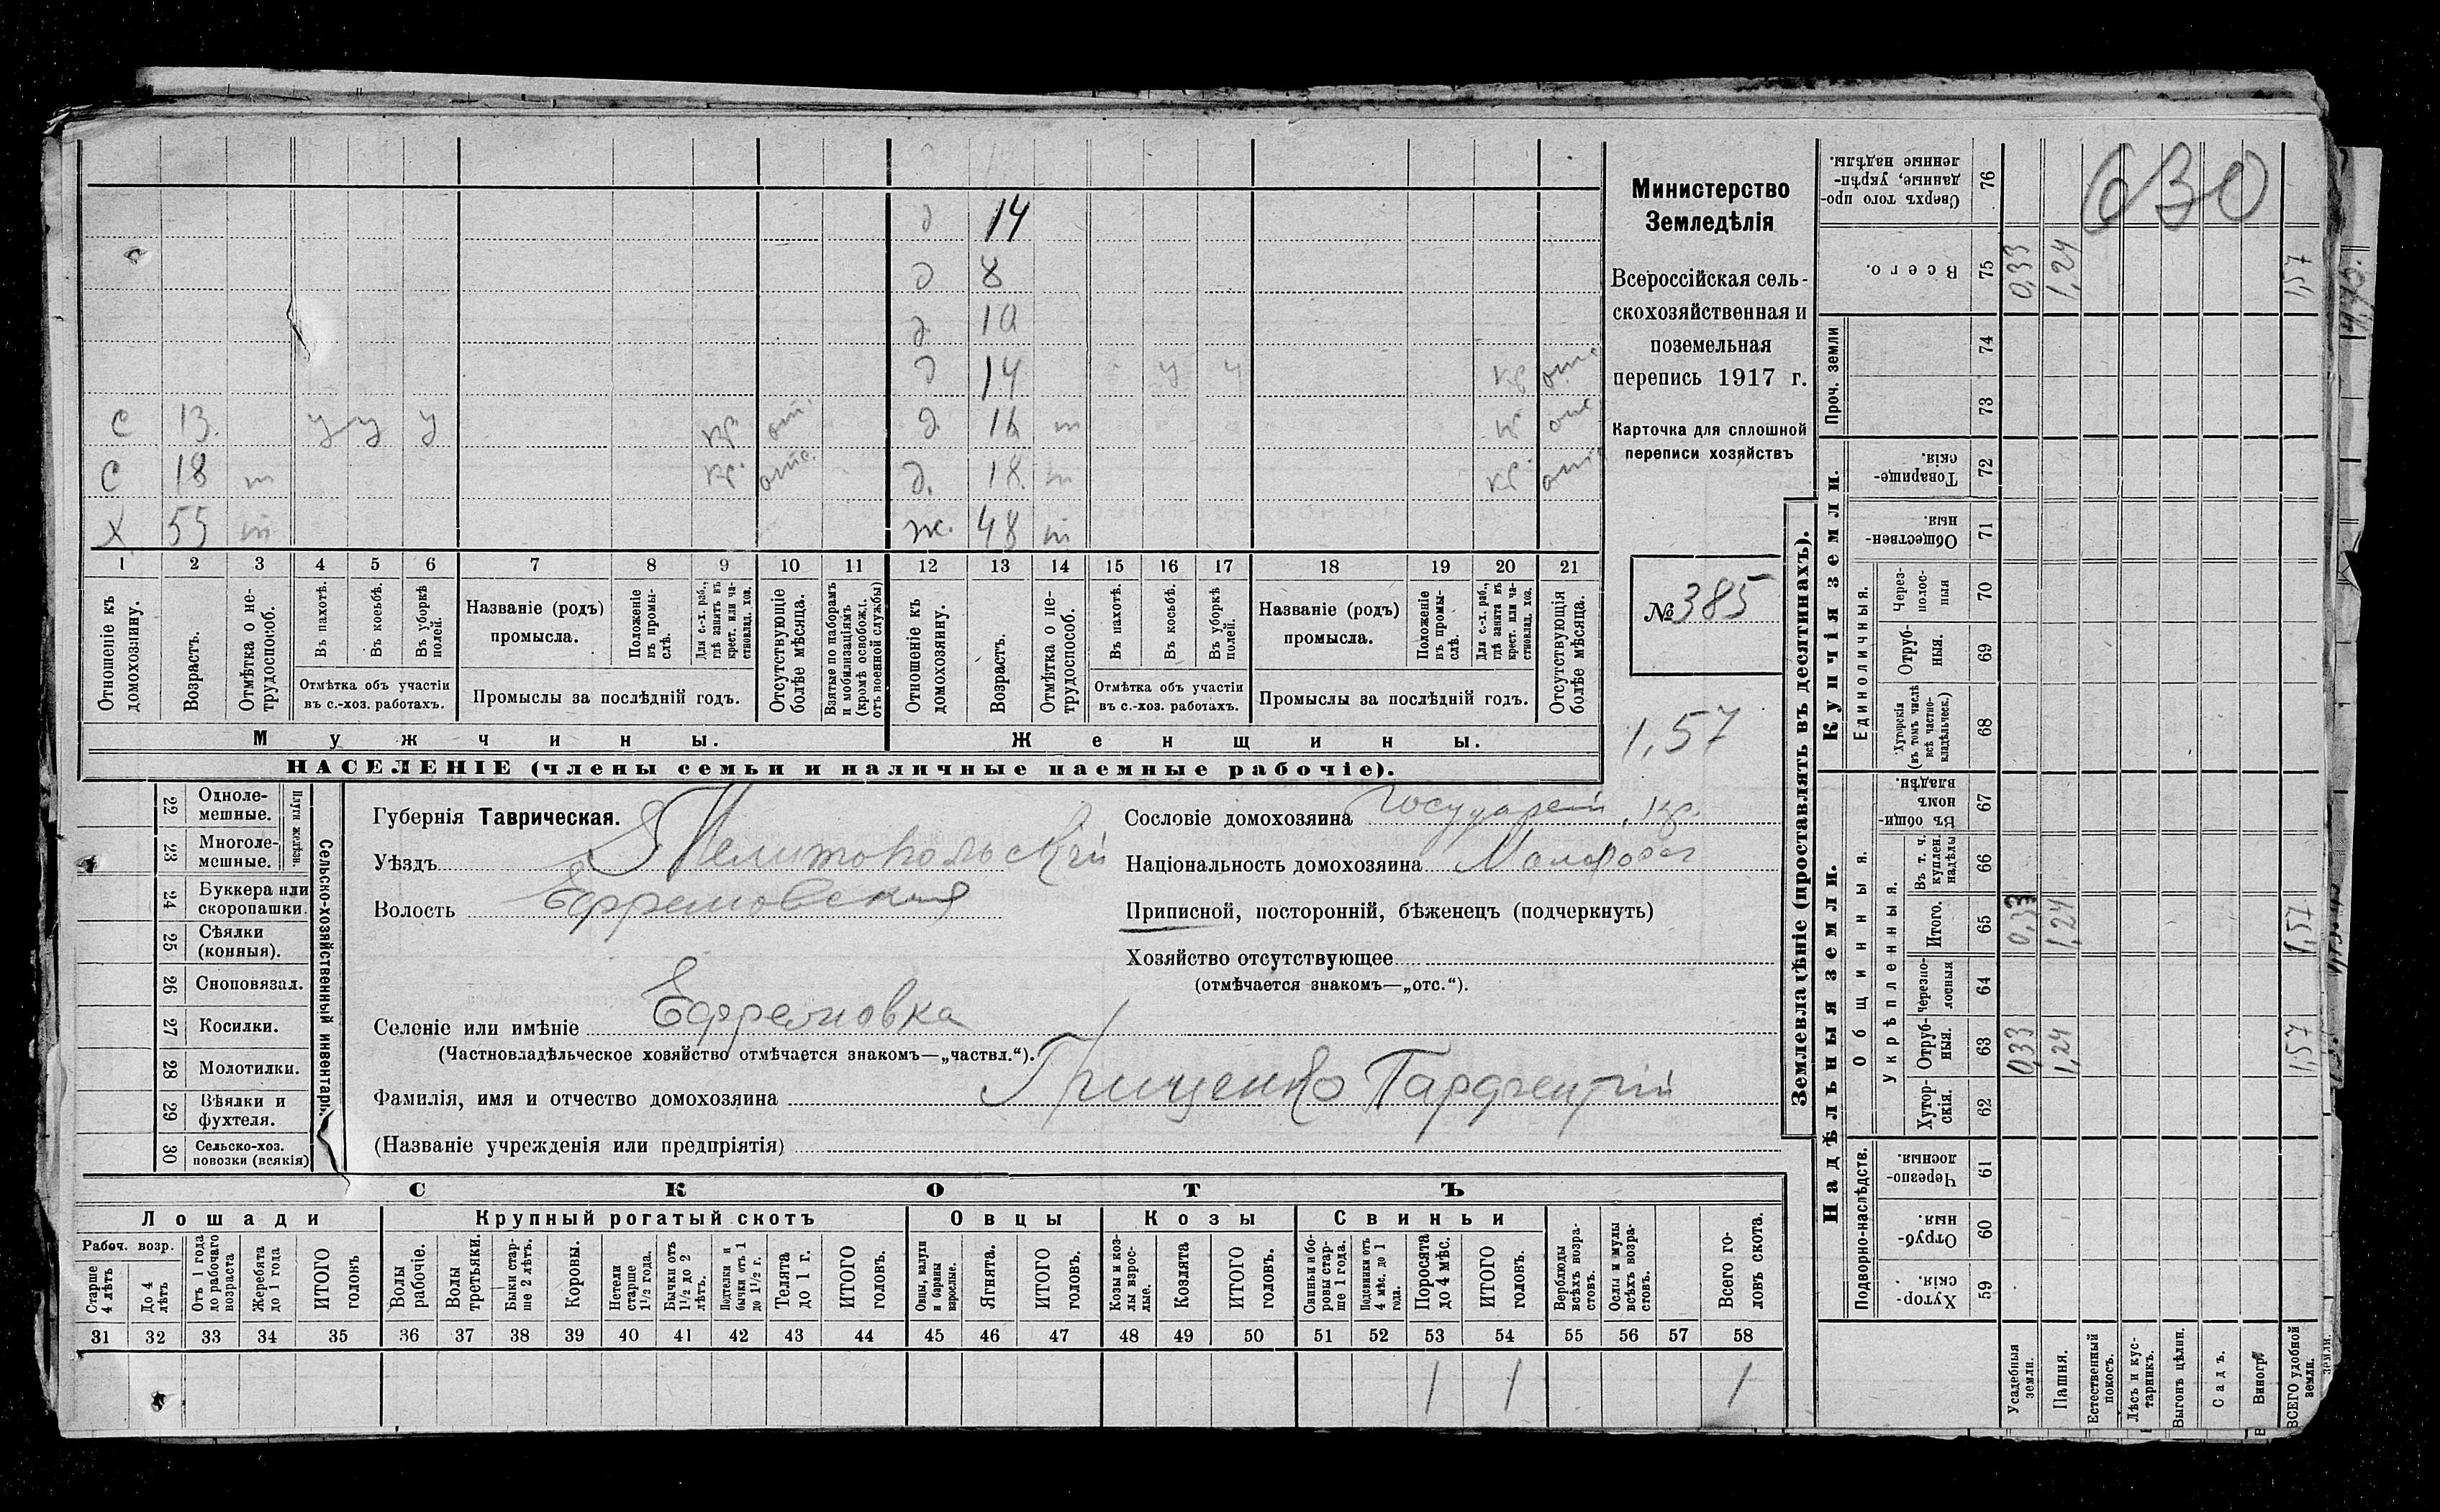 630
д 14
д 8
д. 10
д 14 у у кр отс.
С 13. у у у кр отс.
д. 16 т кр отс.
С 18 т кр. отс.
д. 18. т кр. отс.
Х 55 т
ж. 48 т
1 2 3 4 5 6 7 8 9 10 11 12 13 14 15 16 17 18 19 20 21
Отношеніе къ домохозяину.
Возрастъ.
Отмѣтка о не-
трудоспособ.
Въ пахотѣ.
Въ косьбѣ.
Въ уборкѣ
полей.
Отмѣтка объ участіи
въ с.-хоз. работахъ.
Названіе (родъ)
промысла.
Положеніе
въ промы-
слѣ.
Для с.-х. раб.,
гдѣ занятъ въ
крест. или ча-
стновлад. хоз.
Промыслы за послѣдній годъ.
Отсутствующіе
болѣе мѣсяца.
Взятые по наборамъ
и мобилизаціямъ
(кромѣ освобожд.
отъ военной службы)
Отношеніе къ
домохозяину.
Возрастъ.
Отмѣтка о не-
трудоспособ.
Въ пахотѣ.
Въ косьбѣ.
Въ уборкѣ
полей.
Отмѣтка объ участіи
въ с.-хоз. работахъ.
Названіе (родъ)
промысла.
Положеніе
въ промы-
слѣ.
Для с.-х. раб.,
гдѣ занята въ
крест. или ча-
стновлад. хоз.
Промыслы за послѣдній годъ.
Отсутствующія
болѣе мѣсяца.
Мужчины.
Женщины.
НАСЕЛЕНІЕ (члены семьи и наличные наемные рабочіе).
Министерство
Земледѣлія
Всероссійская сель-
скохозяйственная и
поземельная
перепись 1917 г.
Карточка для сплошной
переписи хозяйствъ
№ 385
1,57
22 Одноле-
мешные.
23 Многоле-
мешные.
Плуги желѣзн.
24 Буккера или
скоропашки.
25 Сѣялки
(конныя).
26 Сноповязал.
27 Косилки.
28 Молотилки.
29 Вѣялки и
фухтеля.
30 Сельско-хоз.
повозки (всякія)
Сельско-хозяйственный инвентарь.
Губернія Таврическая.
Уѣздъ Мелитопольскій
Волость Ефремовская
Селеніе или имѣніе Ефремовка
(Частновладѣльческое хозяйство отмѣчается знакомъ—„частвл.“).
Фамилія, имя и отчество домохозяина Грищенко Парфентій
(Названіе учрежденія или предпріятія)
Сословіе домохозяина Государст. кр.
Національность домохозяина Малоросс
Приписной, посторонній, бѣженецъ (подчеркнуть)
Хозяйство отсутствующее
(отмѣчается знакомъ—„отс.“).
СКОТЪ
Лошади
Рабоч. возр.
Старше
4 лѣтъ
До 4
лѣтъ
Отъ 1 года
до рабочаго
возраста
Жеребята
до 1 года
ИТОГО
головъ
Крупный рогатый скотъ
Волы
рабочіе.
Волы
третьяки.
Быки стар-
ше 2 лѣтъ.
Коровы.
Нетели
старше
1½ года.
Бычки отъ
1½ до 2
лѣтъ.
Подтелки и
бычки отъ 1
до 1½ г.
Телята
до 1 г.
ИТОГО
головъ.
Овцы
Овцы, валухи
и бараны
взрослые.
Ягнята.
ИТОГО
головъ.
Козы
Козы и коз-
лы взрос-
лые.
Козлята
ИТОГО
головъ.
Свиньи
Свиньи и бо-
ровы стар-
ше 1 года.
Подсвинки отъ
4 мѣс. до 1
года.
Поросята
до 4 мѣс.
ИТОГО
головъ.
Верблюды
всѣхъ возра-
стовъ.
Ослы и мулы
всѣхъ возра-
стовъ.
Всего го-
ловъ скота.
31 32 33 34 35 36 37 38 39 40 41 42 43 44 45 46 47 48 49 50 51 52 53 54 55 56 57 58
1 1 1
Землевладѣніе (проставлять въ десятинахъ).
Надѣльныя земли.
Подворно-наслѣдств.
Хутор-
скія. 59
Отруб-
ныя. 60
Черезпо-
лосныя. 61
Общинныя.
Укрѣпленныя.
Хутор-
скія. 62
Отруб-
ныя. 63 0,33 1,24 1,57
Черезпо-
лосныя 64
Итого. 65 0,33 1,24 1,57
Въ т. ч.
куплен.
надѣлы 66
Въ общин-
номъ
владѣн. 67
Купчія земли.
Единоличныя.
Хуторскія
(въ томъ числѣ
всѣ частно-
владѣльческ.) 68
Отруб-
ныя. 69
Через-
полос-
ныя 70
Обществен-
ныя. 71
Товарище-
скія. 72
Проч. земли
73
74
Всего. 75 0,33 1,24 1,57
Сверхъ того про-
данные, укрѣп-
ленные надѣлы. 76
Усадебныя
земли.
Пашня.
Естественный
покосъ.
Лѣсъ и кус-
тарникъ.
Выгонъ цѣлин.
Садъ.
Виногр.
ВСЕГО удобной
земли.